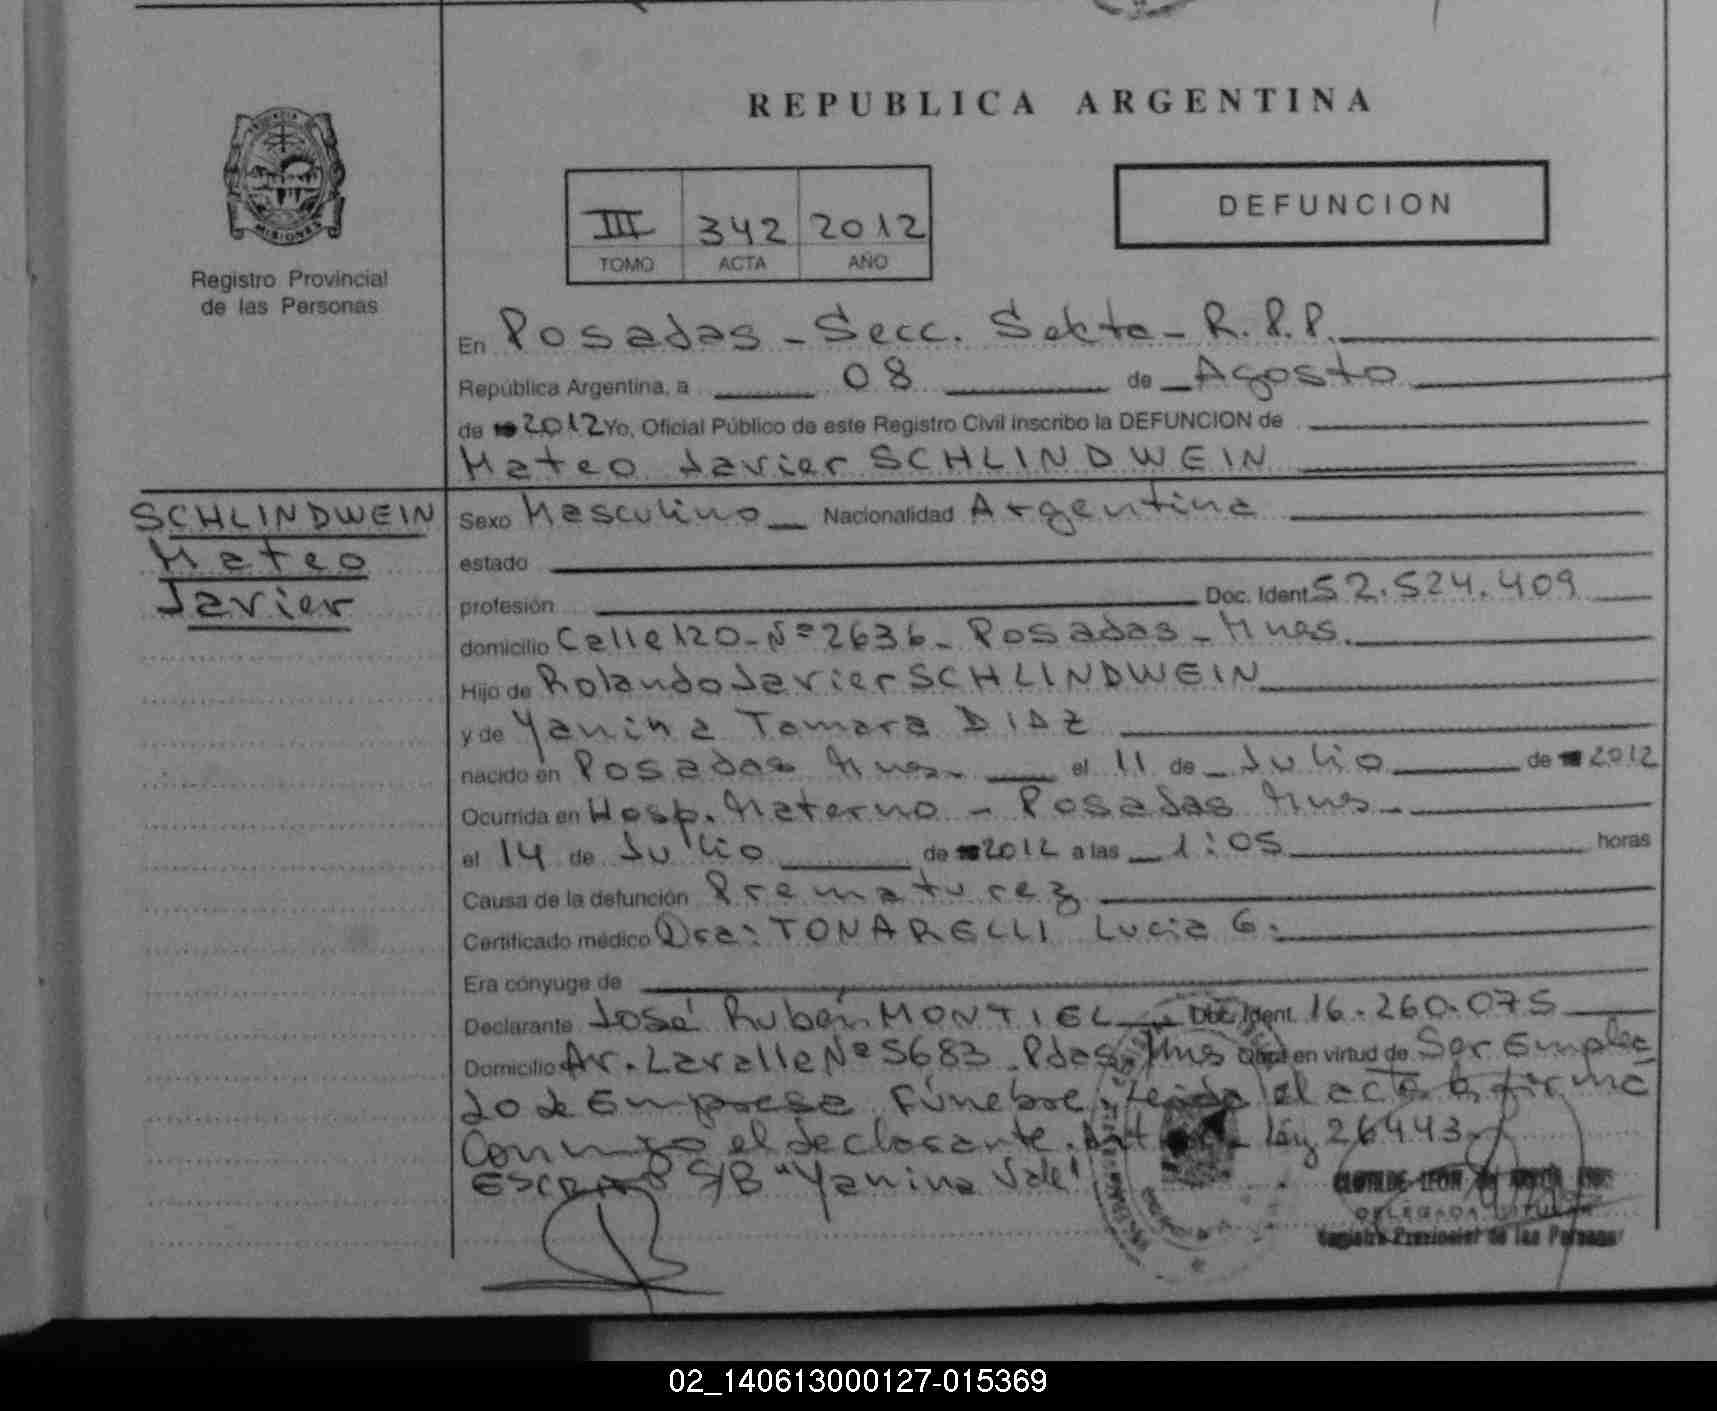 REPUBLICA ARGENTINA
MISIONES
Registro Provincial
de las Personas
III 342 2012
TOMO ACTA AÑO
DEFUNCION
En Posadas - Secc. Sekta - R.P.P.
República Argentina, a 08 de Agosto
de 2012 Yo, Oficial Público de este Registro Civil inscribo la DEFUNCION de
Mateo Javier SCHLINDWEIN
SCHLINDWEIN
Mateo
Javier
Sexo Masculino Nacionalidad Argentina
estado
profesión Doc. Ident. 52.524.409
domicilio Calle 120 - Nº 2636 - Posadas - Mnes.
Hijo de Rolando Javier SCHLINDWEIN
y de Yanina Tamara DIAZ
nacido en Posadas Mnes. el 11 de Julio de 2012
Ocurrida en Hosp. Materno - Posadas Mns -
el 14 de Julio de 2012 a las 1:05 horas
Causa de la defunción Prematurez
Certificado médico Dra: TONARELLI Lucia G.
Era cónyuge de
Declarante José Rubén MONTIEL Doc. Ident. 16.260.075
Domicilio Av. Lavalle Nº 5683 Pdas, Mns Obra en virtud de Ser Emplea
do de Empresa Fúnebre, Leida el acta la firma
conmigo el declarante. Ley 26443
S/B "Yanina Vale"
DELEGADA TITULAR
Registro Provincial de las Personas
02_140613000127-015369